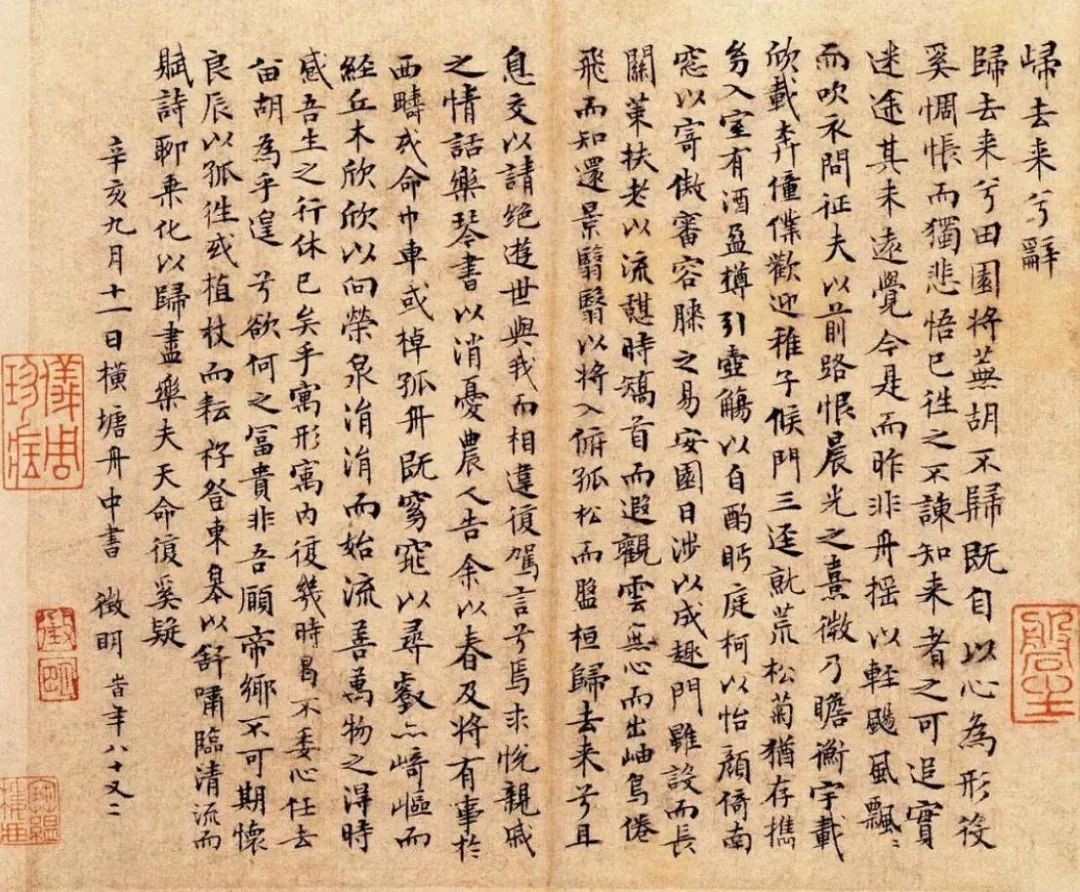 歸去来兮辭
歸去来兮田園将蕪胡不歸既自以心為形役
奚惆悵而獨悲悟已徃之不諫知来者之可追實
迷途其未遠覺今是而昨非舟摇以輕颺風飄〻
而吹衣問征夫以前路恨晨光之熹微乃瞻衡宇載
欣載奔僮僕歡迎稚子候門三逕就荒松菊猶存携
幼入室有酒盈樽引壺觴以自酌眄庭柯以怡顔倚南
窓以寄傲審容膝之易安園日涉以成趣門雖設而長
關策扶老以流憇時矯首而遐觀雲無心而出岫鳥倦
飛而知還景翳翳以将入俯孤松而盤桓歸去来兮且
息交以請绝遊世與我而相違復駕言兮焉求悅親戚
之情話樂琴書以消憂農人告余以春及将有事於
西疇或命巾車或棹孤舟既窈窕以尋壑亦崎嶇而
経丘木欣欣以向榮泉涓涓而始流善萬物之得時
感吾生之行休已矣乎寓形寓内復幾時曷不委心任去
留胡為乎遑兮欲何之冨貴非吾願帝鄉不可期懷
良辰以孤徃或植杖而耘耔登東皋以舒嘯臨清流而
賦詩聊乗化以歸盡樂夫天命復奚疑
辛亥九月十一日横塘舟中書 徵明 時年八十又二
儀周珍藏
徵明